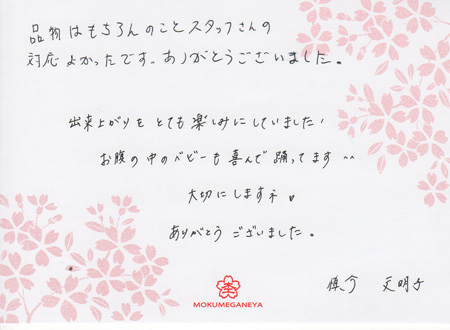 品物はもちろんのことスタッフさんの
対応よかったです。ありがとうございました。
出来上がりをとても楽しみにしていました!
お腹の中のベビーも喜んで踊ってます^^
大切にします
ありがとうございました。
MOKUMEGANEYA